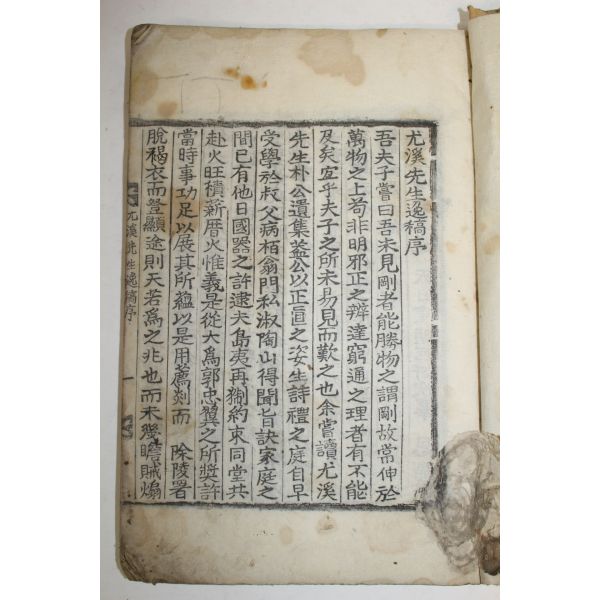 尤溪先生逸稿序
吾夫子嘗曰吾未見剛者能勝物之謂剛故常伸於
萬物之上苟非明邪正之辨達窮通之理者有不能
及矣宜乎夫子之所未易見而歎之也余嘗讀尤溪
先生朴公遺集蓋公以正直之姿生詩禮之庭自早
受學於叔父病栢翁門私淑陶山得聞旨訣家庭之
間已有他日國器之許逮夫島夷再猘約束同堂共
赴火旺積薪厝火惟義是從大爲郭忠翼之所奬許
當時事功足以展其所蘊以是用薦剡而 除陵署
脫褐衣而登顯途則天若爲之兆也而未幾瞻賊煽
尤溪先生逸稿序 一